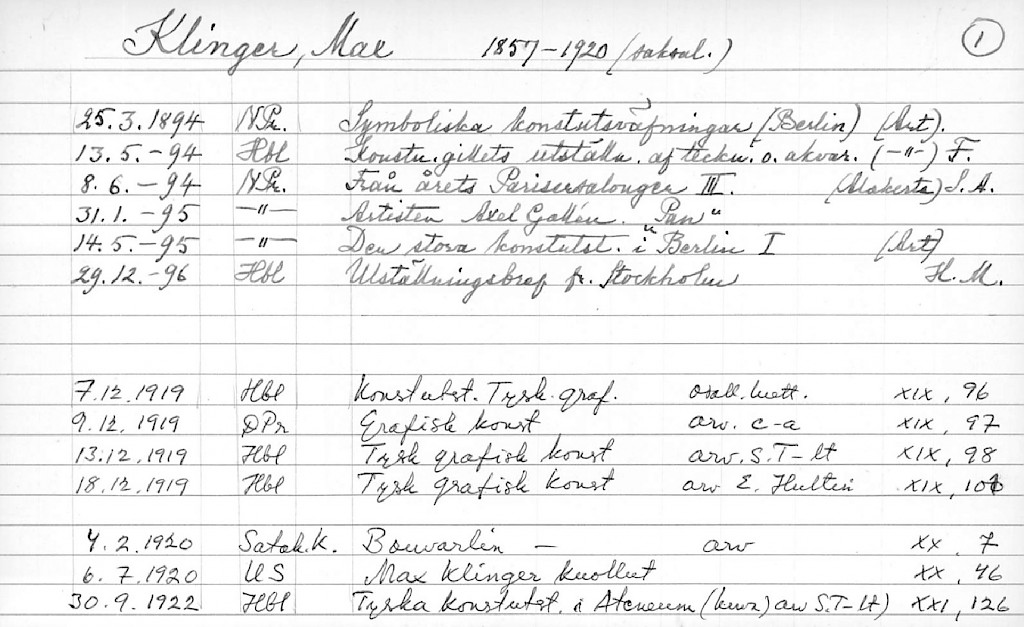 Klinger, Max 1857-1920 (saksal.) 1
25.3.1894 N.Pr. Symboliska konstutsväfningar (Berlin) (Art).
13.5.-94 Hbl Konstn.gillets utställn. af teckn. o. akvar. (-"-) F.
8.6.-94 N.Pr. Från årets Parisersalonger III. (Alakerta) S.A.
31.1.-95 -"- Artisten Axel Gallén. "Pan"
14.5.-95 -"- Den stora konstutst. i Berlin I (Art)
29.12.-96 Hbl Utställningsbref fr. Stockholm H.M.
7.12.1919 Hbl Konstutst. Tysk graf. XIX, 96
9.12.1919 DPr Grafisk konst arv. c-a XIX, 97
13.12.1919 Hbl Tysk grafisk konst arv. S.T-lt XIX, 98
18.12.1919 Hbl Tysk grafisk konst arv E. Hultin XIX, 101
4.2.1920 Satak.K. arv XX, 7
6.7.1920 US Max Klinger kuollut XX, 46
30.9.1922 Hbl Tyska konstutst. i Ateneum (kuva) arv S.T-lt) XXI, 126